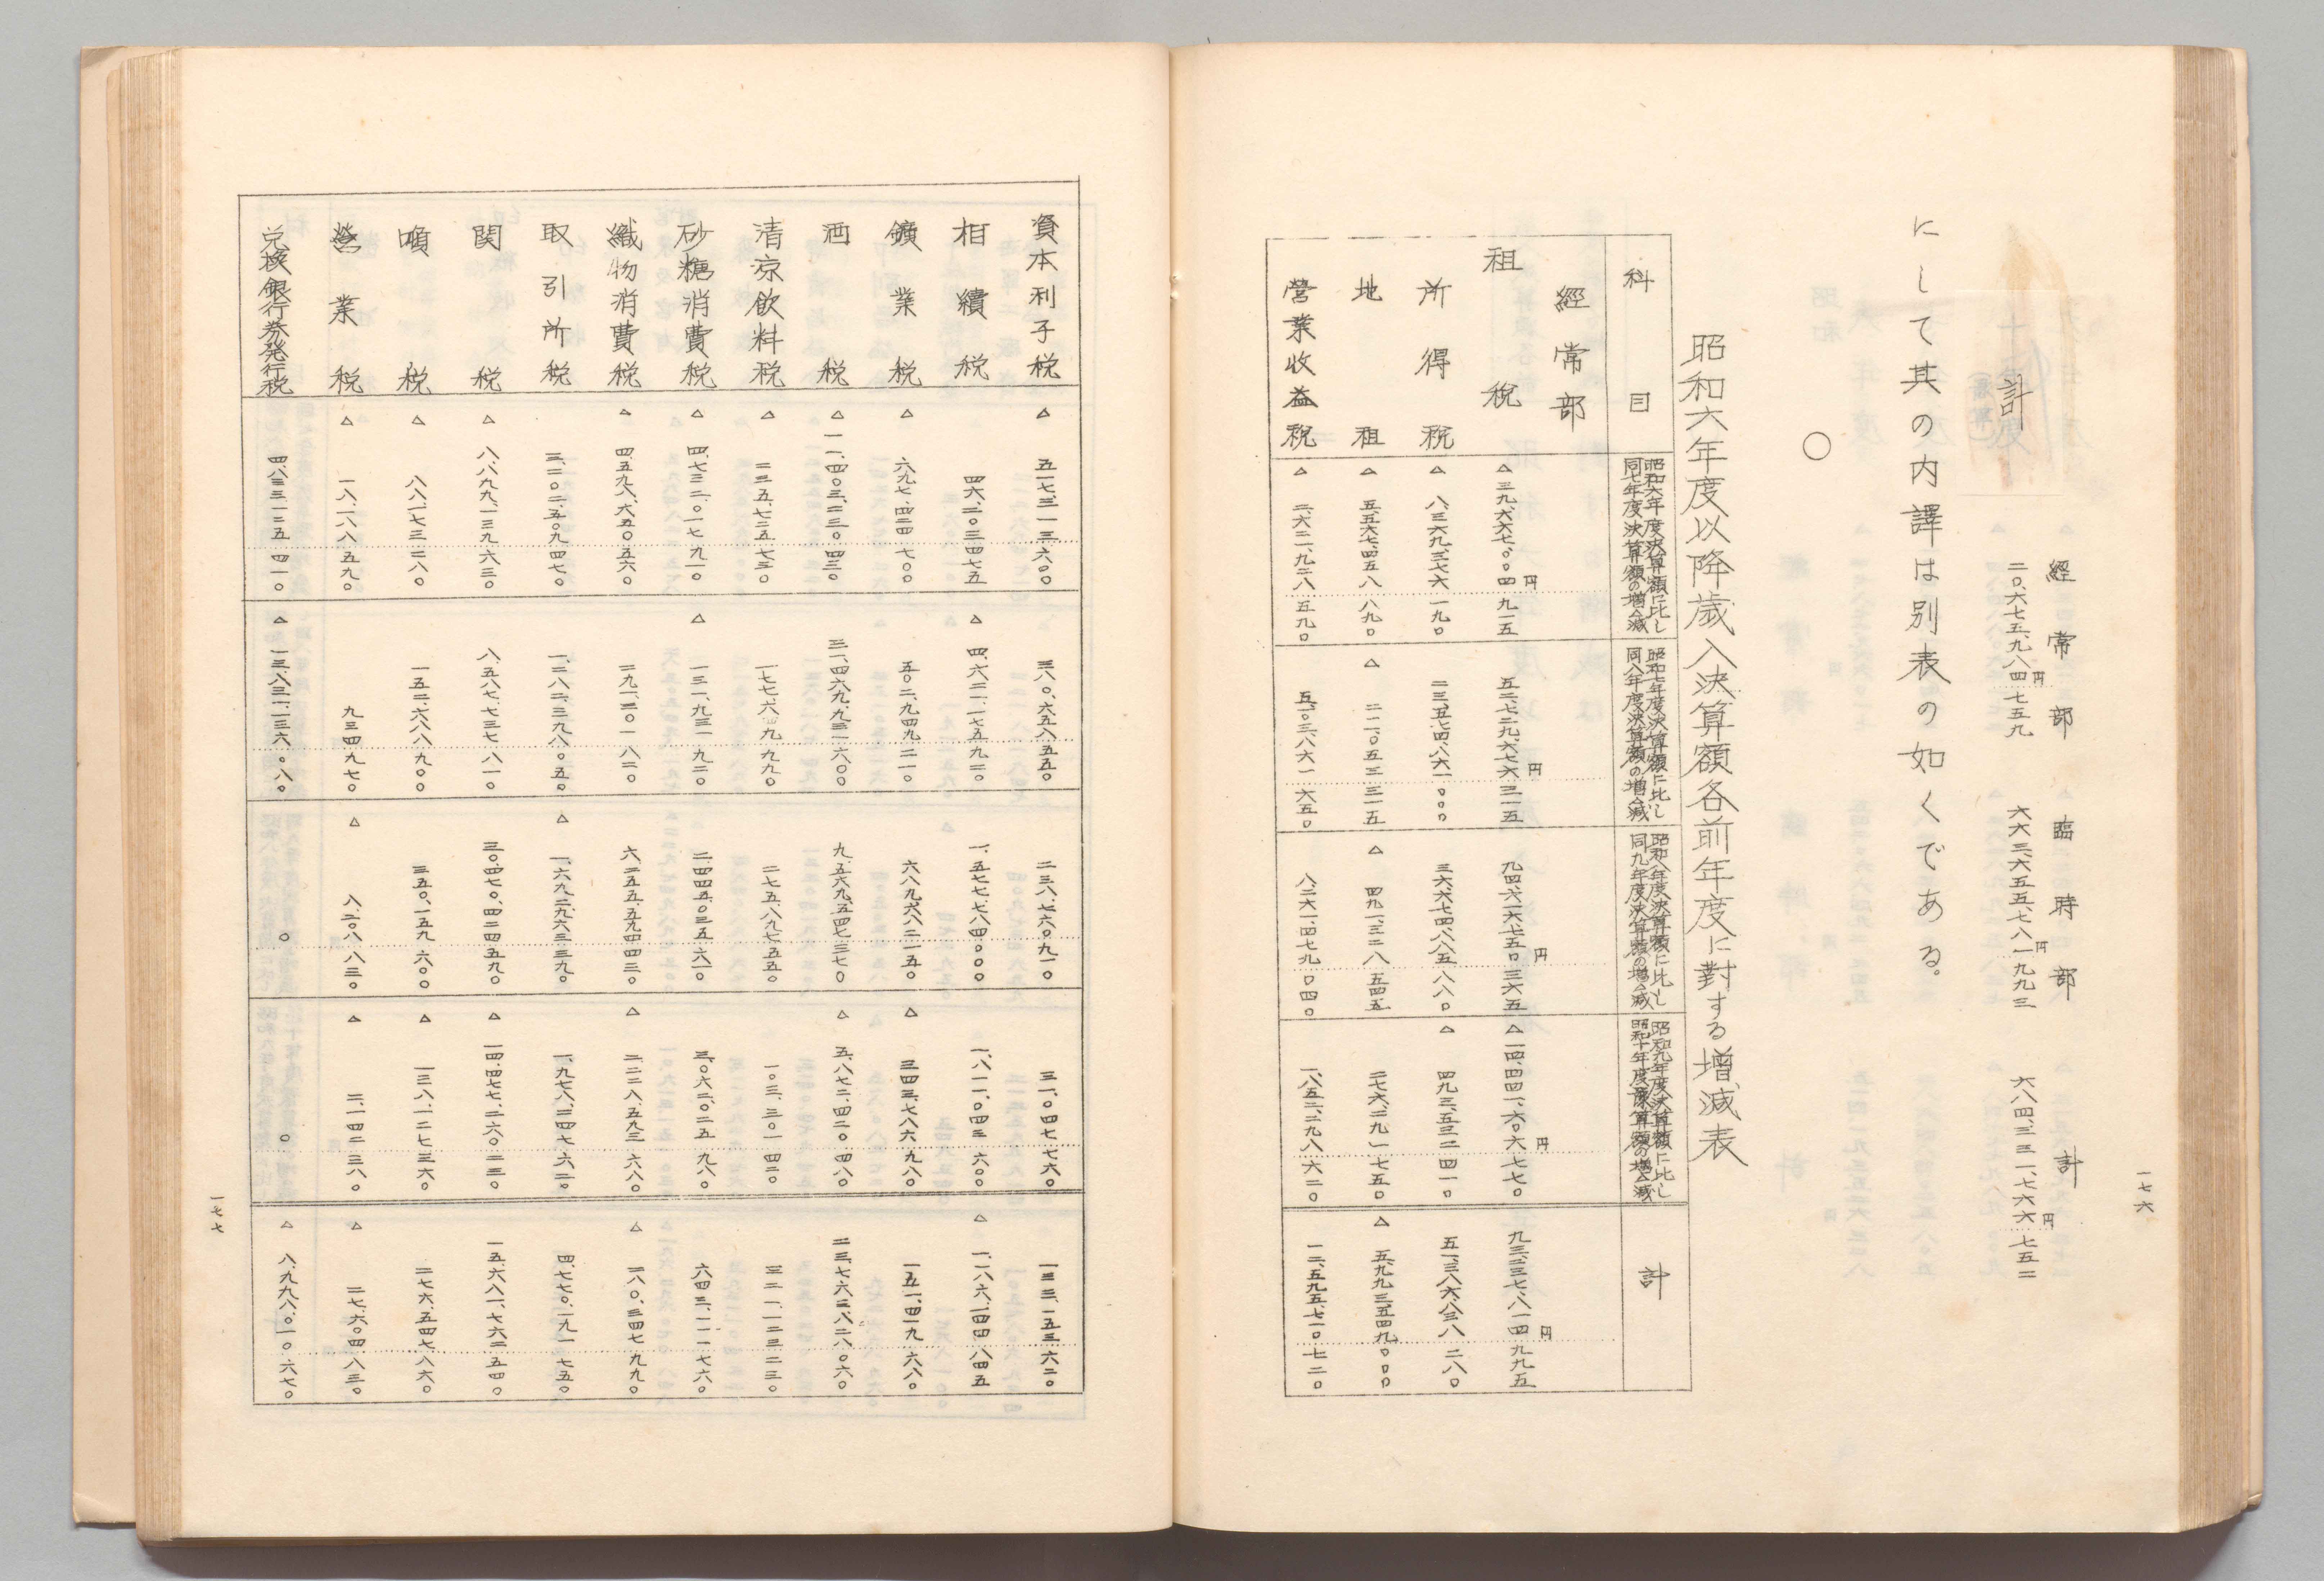 一七六
經常部 臨時部 計
計 二〇、六七五、九八四円七五九 六六三、六五五、七八一円九九三 六八四、三三一、七六六円七五二
にして其の内譯は別表の如くである。
〇
昭和六年度以降歳入決算額各前年度に對する増△減表
科目 昭和六年度決算額に比し同七年度決算額の増△減 昭和七年度決算額に比し同八年度決算額の増△減 昭和八年度決算額に比し同九年度決算額の増△減 昭和九年度決算額に比し昭和十年度豫算額の増△減 計
經常部
租税 △三九、六六七、〇〇四円九一五 五二、七二九、六七六円三一五 九四、六一六、七五〇円三六五 △一四、四四一、六〇六円七七〇 九三、二三七、八一四円九九五
所得税 △八、三六九、三七六 一九〇 二三、五七四、八六一 〇〇〇 三六、六七四、八八五 八八〇 △四九三、五三二 四一〇 五一、三八六、八三八 二八〇
地租 △五、五六七、四五八 八九〇 △二一一、〇五三 三一五 △四九一、三二八 五四五 二七六、二九一 七五〇 △五、九九三、五四九 〇〇〇
營業收益税 △二、六二一、九二八 五九〇 五、一〇三、八六一 六五〇 八、二六一、四七九 〇四〇 一、八五二、二九八 六二〇 一二、五九五、七一〇 七二〇
資本利子税 △五一七、三一三 六〇〇 三八〇、六五八 五五〇 二三八、七六〇 九一〇 三一、〇四七 七六〇 一三三、一五三 六二〇
相續税 四六、二〇三 四七五 △四、六二一、一七五 九二〇 一、五七七、七八四 〇〇〇 一、八一一、〇四三 六〇〇 △一、一八六、一四四 八四五
鑛業税 △六九七、四二四 七〇〇 五〇二、九四九 二一〇 六八九、六八二 一五〇 △三四三、七八六 九八〇 一五一、四一九 六八〇
酒税 △一一、四〇三、二三〇 四三〇 三一、四六九、九三一 六〇〇 九、五六九、五四七 三七〇 △五、八七二、四二〇 四八〇 二三、七六三、八二八 〇六〇
清涼飲料税 △二三五、七二五 七三〇 一七七、六四九 九九〇 二七五、八九七 五五〇 一〇三、三〇一 四二〇 三二一、一二三 二三〇
砂糖消費税 △四、七三二、〇一七 九一〇 △一三一、九三一 九二〇 二、四四五、〇三五 六一〇 三、〇六二、〇二五 九八〇 六四三、一一一 七六〇
織物消費税 △四、五九八、六五〇 五六〇 二九一、二〇一 八二〇 六、二五五、五九四 四三〇 △二、二二八、五九三 六八〇 △二八〇、三四七 九九〇
取引所税 三、二〇二、五〇九 四七〇 一、二八二、三九八 〇五〇 △一、六九二、九六三 三九〇 一、九七八、二四七 六二〇 四、七七〇、一九一 七五〇
関税 △八、八九九、一三九 六三〇 八、五八七、七三七 八一〇 三〇、四七〇、四二四 五九〇 △一四、四七七、二六〇 二三〇 一五、六八一、七六二 五四〇
噸税 △八八、一七三 二八〇 一五二、六八八 九〇〇 三五〇、一五九 六〇〇 △一三八、一二七 三六〇 二七六、五四七 八六〇
營業税 △一八、一八八 五九〇 九三四 九七〇 △八、二〇八 八三〇 △二、一四二 三八〇 △二七、六〇四 八三〇
兌換銀行券発行税 四、八三三、一二五 四一〇 △一三、八三一、一三六 〇八〇 〇 〇 △八、九九八、〇一〇 六七〇
一七七